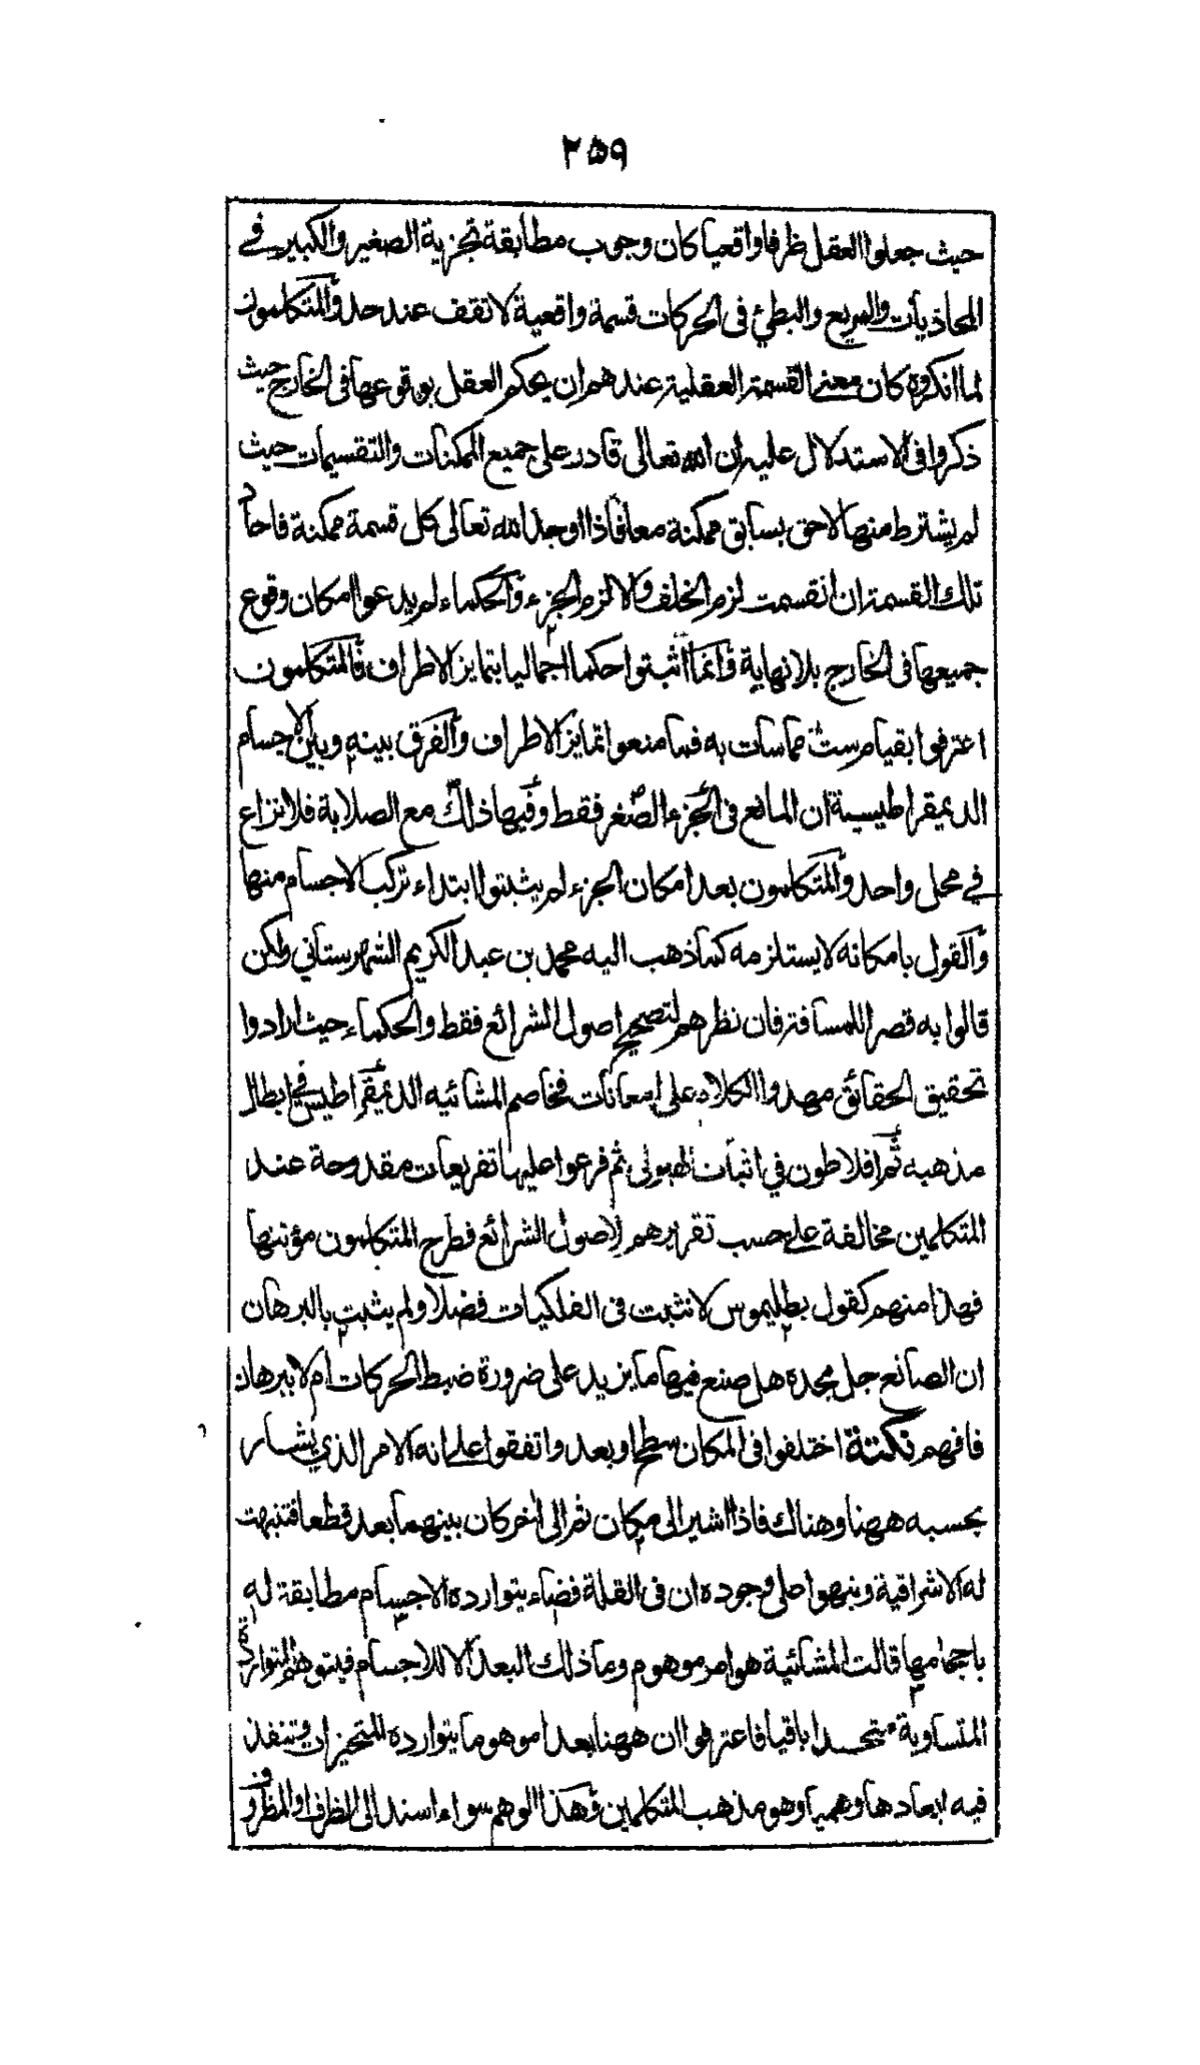 ٢٥٩
حيث جعلوا العقل ظرفا واقعيا كان وجوب مطابقة تجزية الصغير والكبير في
المحاذيات والسريع والبطئ في الحركات قسمة واقعية لا تقف عند حد والمتكلمون
لما انكروه كان معنى القسمة العقلية عندهم ان يحكم العقل بوقوعها في الخارج حيث
ذكروا في الاستدلال عليه ان الله تعالى قادر على جميع الممكنات والتقسيمات حيث
لم يشترط منها لاحق بسابق ممكنة معا فاذا اوجد الله تعالى كل قسمة ممكنة فاحاد
تلك القسمة ان انقسمت لزم الخلف والا لزم الجزء والحكماء لم يدعوا امكان وقوع
جميعها في الخارج بلا نهاية وانما اثبتوا حكما اجماليا بتمايز الاطراف فالمتكلمون
اعترفوا بقيام ست مماسات به فما منعوا تمايز الاطراف والفرق بينه وبين الاجسام
الديمقراطيسية ان المانع في الجزء الصغر فقط وفيها ذلك مع الصلابة فلا نزاع
في محل واحد والمتكلمون بعد امكان الجزء لم يثبتوا ابتداء تركب الاجسام منها
والقول بامكانه لا يستلزمه كما ذهب اليه محمد بن عبد الكريم الشهرستاني ولكن
قالوا به قصرا للمسافة فان نظرهم لتصحيح اصول الشرائع فقط والحكماء حيث ارادوا
تحقيق الحقائق مهدوا الكلام على امعانات فخاصم المشائيه الديمقراطيس في ابطال
مذهبه ثم افلاطون في اثبات الهيولى ثم فرعوا عليها تفريعات مقدوحة عند
المتكلمين مخالفة على حسب تقريرهم لاصول الشرائع فطرح المتكلمون مؤنتها
فهذا منهم كقول بطليموس لا نثبت في الفلكيات فضلا ولم يثبت بالبرهان
ان الصانع جل مجده هل صنع فيها ما يزيد على ضرورة ضبط الحركات ام لا ببرهان
فافهم نكتة اختلفوا في المكان سطح او بعد واتفقوا على انه الامر الذي يشار
بحسبه ههنا وهناك فاذا اشير الى مكان ثم الى اخر كان بينهما بعد قطعا فتنبهت
له الاشراقية ونبهوا على وجوده ان في القلة فضاء يتوارده الاجسام مطابقة له
باحجامها قالت المشائية هو امر موهوم وما ذلك البعد الا للاجسام فيتوهم المتواردة
المتساوية متحدا باقيا فاعترفوا ان ههنا بعدا موهوما يتوارده المتحيزات وتنفذ
فيه ابعادها وهميا وهو مذهب المتكلمين وهذا الوهم سواء اسند الى الظرف او المظروف